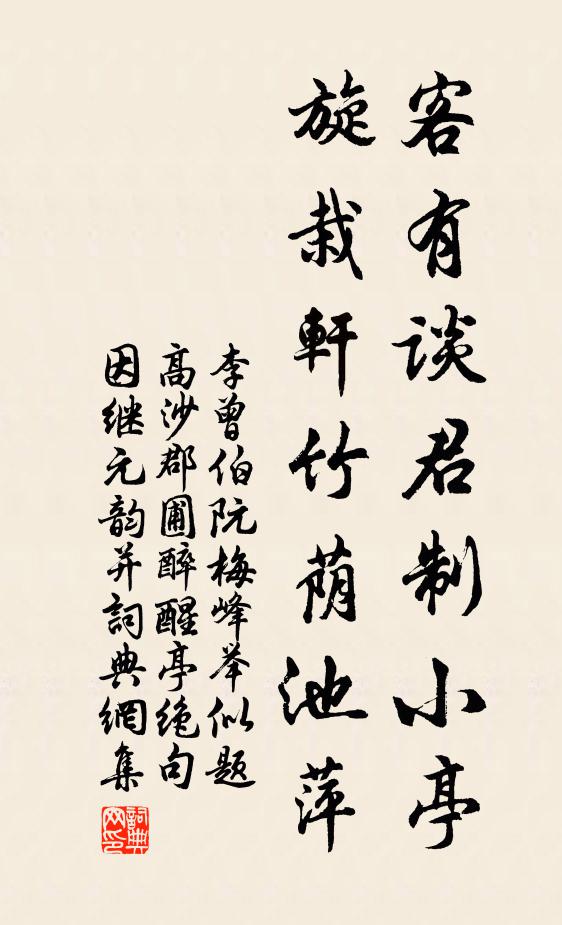 客有谈君制小亭
旋栽軒竹荫池萍
李曾伯阮梅峰举似题
高沙郡圃醉醒亭绝句
因继元韵并詞典網集
詞典
网印